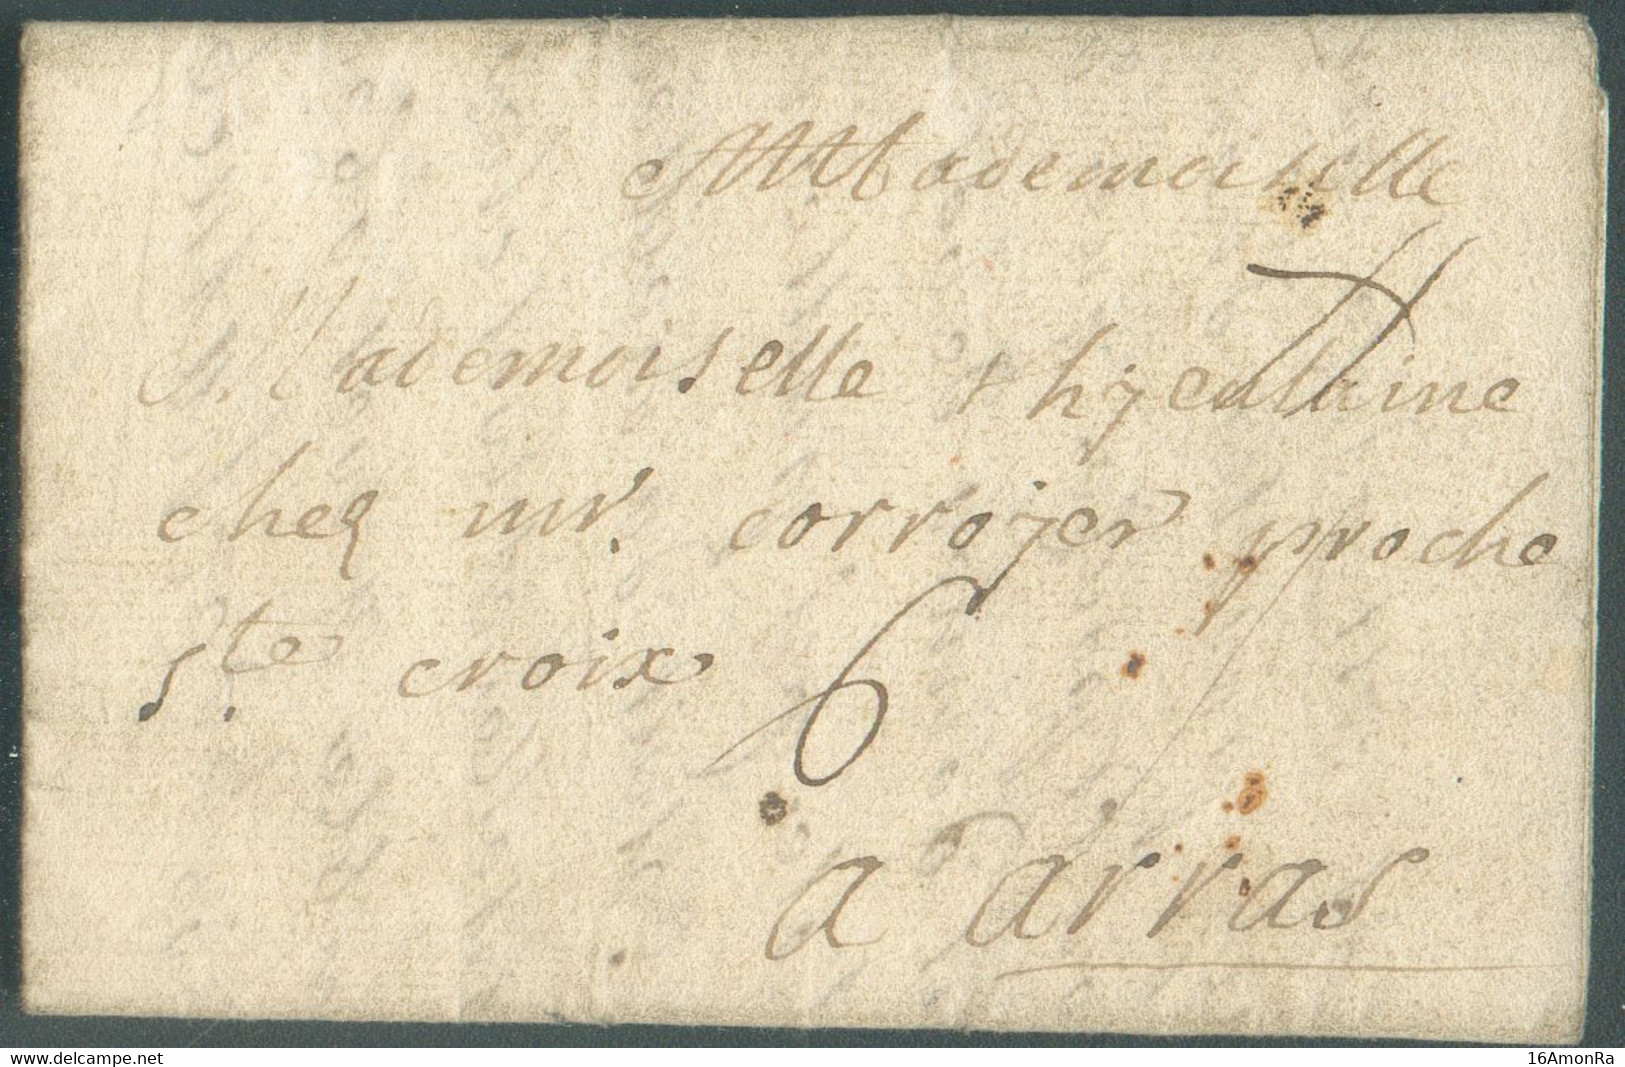 Mademoiselle
Mademoiselle thyeulaine
chez mr. corroyer proche
ste. croix 6
a arras
delcampe.net
16AmonRa